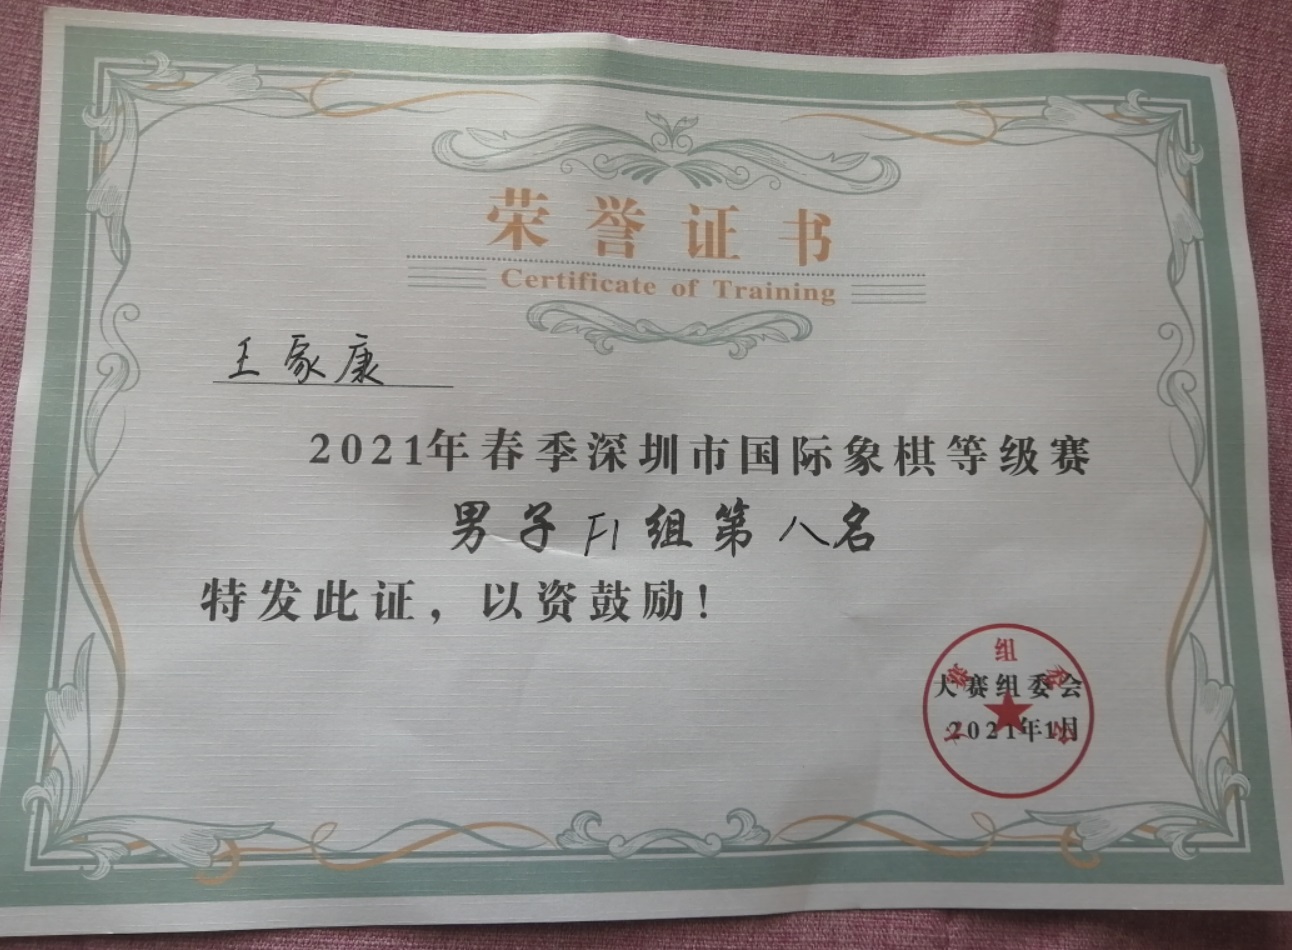 荣誉证书
Certificate of Training
王家康
2021年春季深圳市国际象棋等级赛
男子F1组第八名
特发此证，以资鼓励！
大赛组委会
大赛组委会
2021年1月